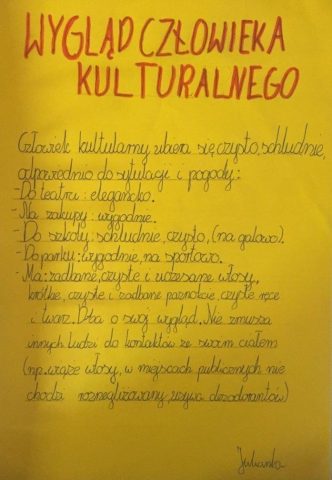 WYGLĄD CZŁOWIEKA
KULTURALNEGO
Człowiek kulturalny ubiera się czysto, schludnie,
odpowiednio do sytuacji i pogody:
- Do teatru: elegancko.
- Na zakupy: wygodnie.
- Do szkoły: schludnie, czysto, (na galowo).
- Do parku: wygodnie, na sportowo.
- Ma: zadbane, czyste i uczesane włosy,
krótkie, czyste i zadbane paznokcie, czyste ręce
i twarz. Dba o swój wygląd. Nie zmusza
innych ludzi do kontaktów ze swoim ciałem
(np. wiąże włosy, w miejscach publicznych nie
chodzi roznegliżowany, używa dezodorantów)
Julianka